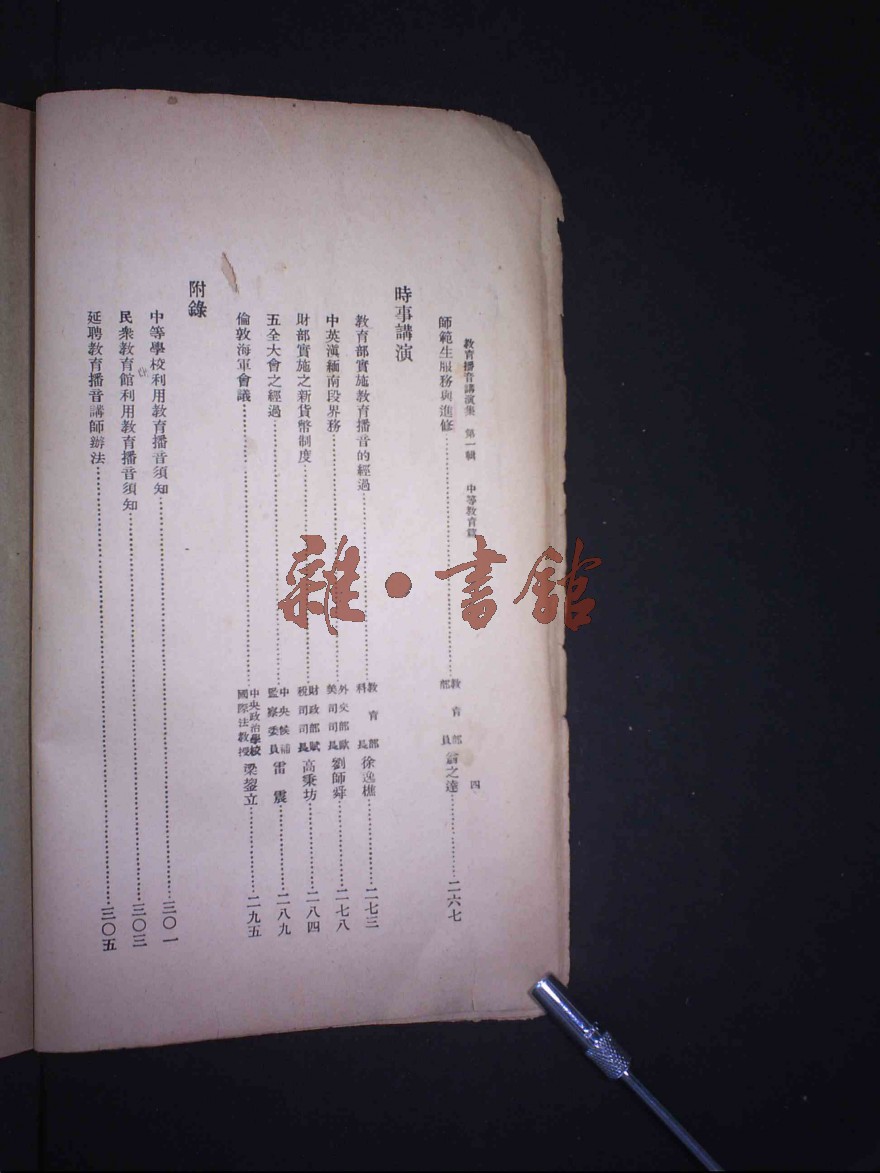 教育播音講演集 第一輯 中等教育篇 四
師範生服務與進修 教育部部員 翁之達 二六七
時事講演
教育部實施教育播音的經過 教育部科長 徐逸樵 二七三
中英滇緬南段界務 外交部歐美司司長 劉師舜 二七八
財部實施之新貨幣制度 財政部賦稅司司長 高秉坊 二八四
五全大會之經過 中央候補監察委員 雷震 二八九
倫敦海軍會議 中央政治學校國際法教授 梁鋆立 二九五
附錄
中等學校利用教育播音須知 三〇一
民衆教育館利用教育播音須知 三〇三
延聘教育播音講師辦法 三〇五
雜·書館